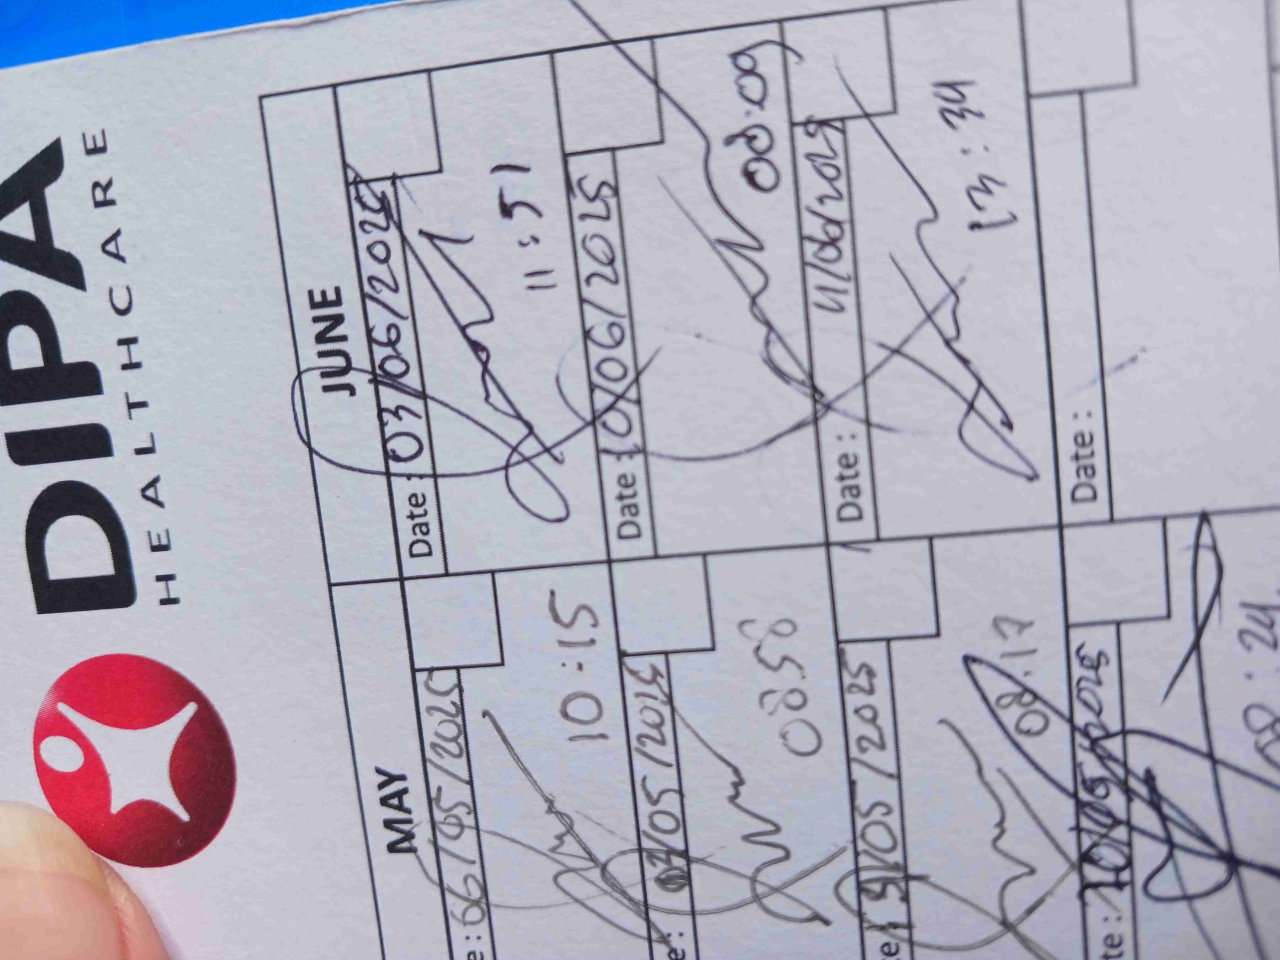 DIPA
HEALTHCARE
MAY
JUNE
te: 06/05/2025
10:15
Date: 03/06/2025
11:51
te: /05/2025
08:58
Date: 10/06/2025
08:09
te: /05/2025
08:17
Date: 11/06/2025
13:34
te: /05/2025
08:24
Date: